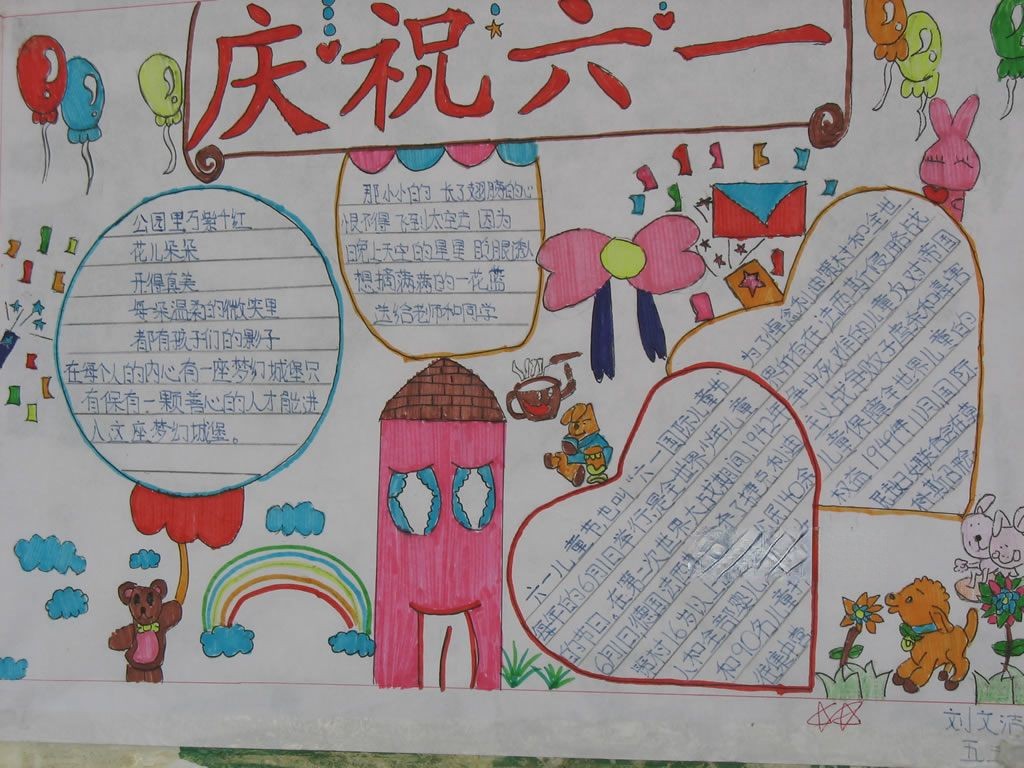 庆祝六一
公园里万紫千红
花儿朵朵
开得真美
每朵温柔的微笑里
都有孩子们的影子
在每个人的内心有一座梦幻城堡只
有保有一颗善心的人才能进
入这座梦幻城堡。
那小小的 长了翅膀的心
恨不得飞到太空去 因为
晚上天空的星星 眨眼诱人
想摘满满的一花篮
送给老师和同学
六一儿童节也叫“六一国际儿童节”
每年的6月1日举行是全世界少年儿童
的节日。在第二次世界大战期间,1942年
6月 德国法西斯 捷克利迪
16岁以上 公民140余
人和全部婴
和90名儿童
为了悼念利迪策村和全世
界所有在法西斯侵略战
争中死难的儿童反对帝国
主义战争贩子虐杀和毒害
儿童保障全世界儿童的
权益1949年11月国际
刘文洁
五